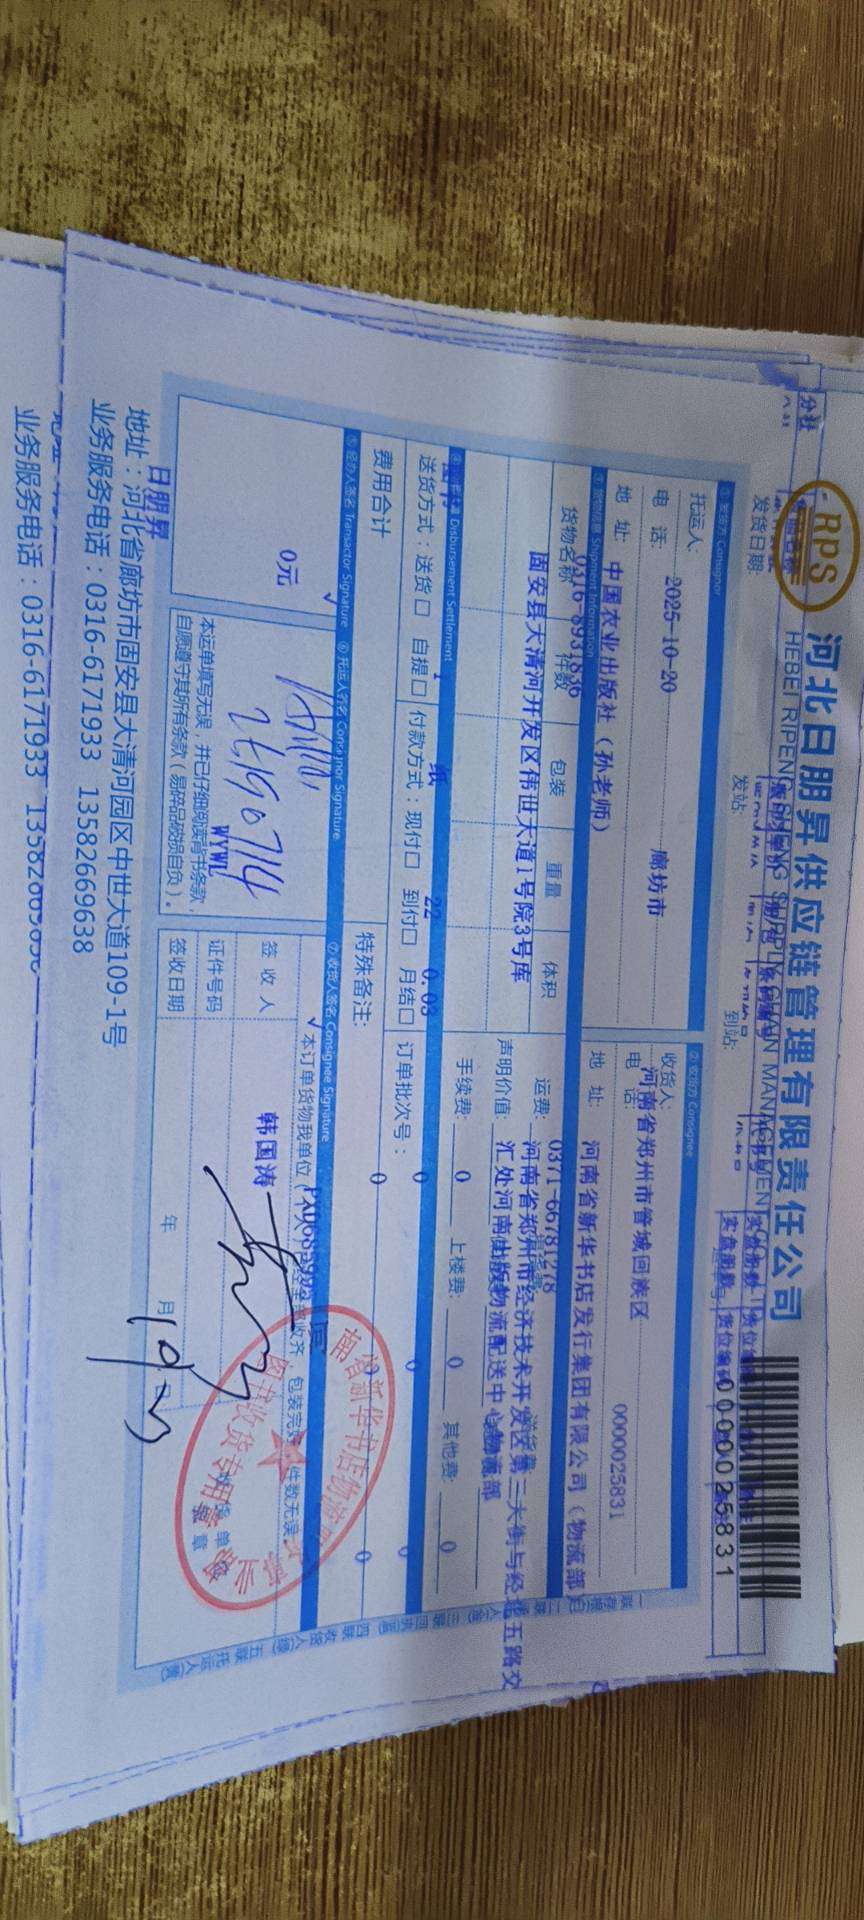 RPS
河北日朋昇供应链管理有限责任公司
0000025831
发货日期:
发站:
到站:
① 发货方 Consignor
② 收货方 Consignee
托运人:
收货人:
2025-10-20
廊坊市
河南省郑州市管城回族区
电 话:
电 话:
0000025831
地 址:
中国农业出版社 (孙老师)
地 址:
河南省新华书店发行集团有限公司 (物流部
③ 货物信息 Shipment Information
0316-8931836
0371-66781278
货物名称
件数
包装
重量
体积
运费:
固安县大清河开发区伟世大道1号院3号库
河南省郑州市经济技术开发区第三大街与经北五路交
声明价值:
汇处河南出版物流配送中心物流部
手续费:
0
上楼费:
0
其他费:
0
Disbursement Settlement
图书
1
纸
22
0.03
0
0
0
送货方式:送货□ 自提□
付款方式:现付□ 到付□ 月结□
订单批次号:
费用合计
0
0
0
特殊备注:
⑤ 经办人签名 Transactor Signature
⑥ 托运人签名 Consignor Signature
⑦ 收货人签名 Consignee Signature
√
√
0元
本订单货物我单位
包装完好
件数无误
签 收 人
韩国涛
证件号码
签收日期
年
月
本运单填写无误,并已仔细阅读背书条款,
自愿遵守其所有条款(易碎品破损自负)。
WYWL
日朋昇
地址:河北省廊坊市固安县大清河园区中世大道109-1号
业务服务电话:0316-6171933 13582669638
业务服务电话:0316-6171933